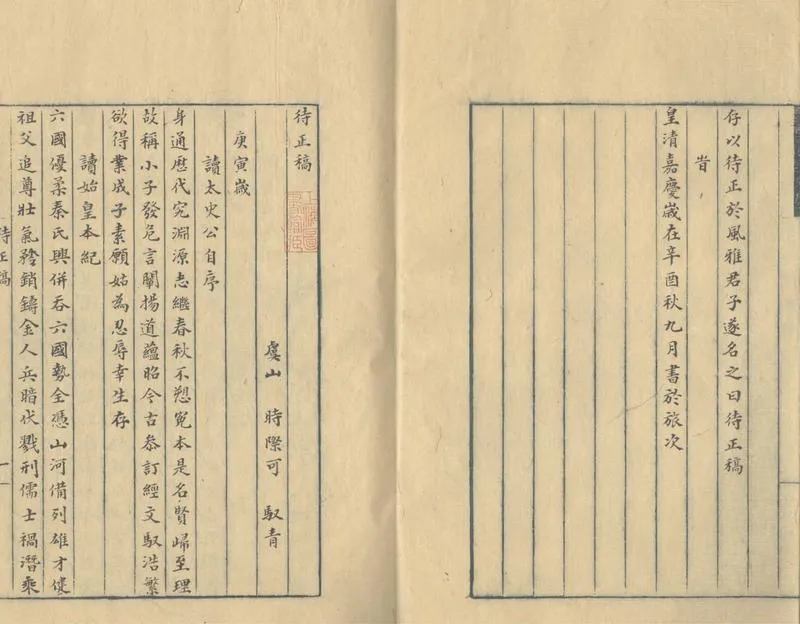 存以待正於風雅君子遂名之曰待正稿
旹
皇清嘉慶歲在辛酉秋九月書於旅次
待正稿
上海圖
書館藏
虞山 時際可 馭青
庚寅歲
讀太史公自序
身通歷代究淵源志繼春秋不愬冤本是名賢歸至理
故稱小子發危言闡揚道蘊昭今古叅訂經文馭浩繁
欲得業成子素願姑為忍辱幸生存
讀始皇本紀
六國優柔秦氏興併吞六國勢全憑山河備列雄才健
祖父追尊壯氣矜銷鑄金人兵暗伏戮刑儒士禍潛乘
待正稿 一